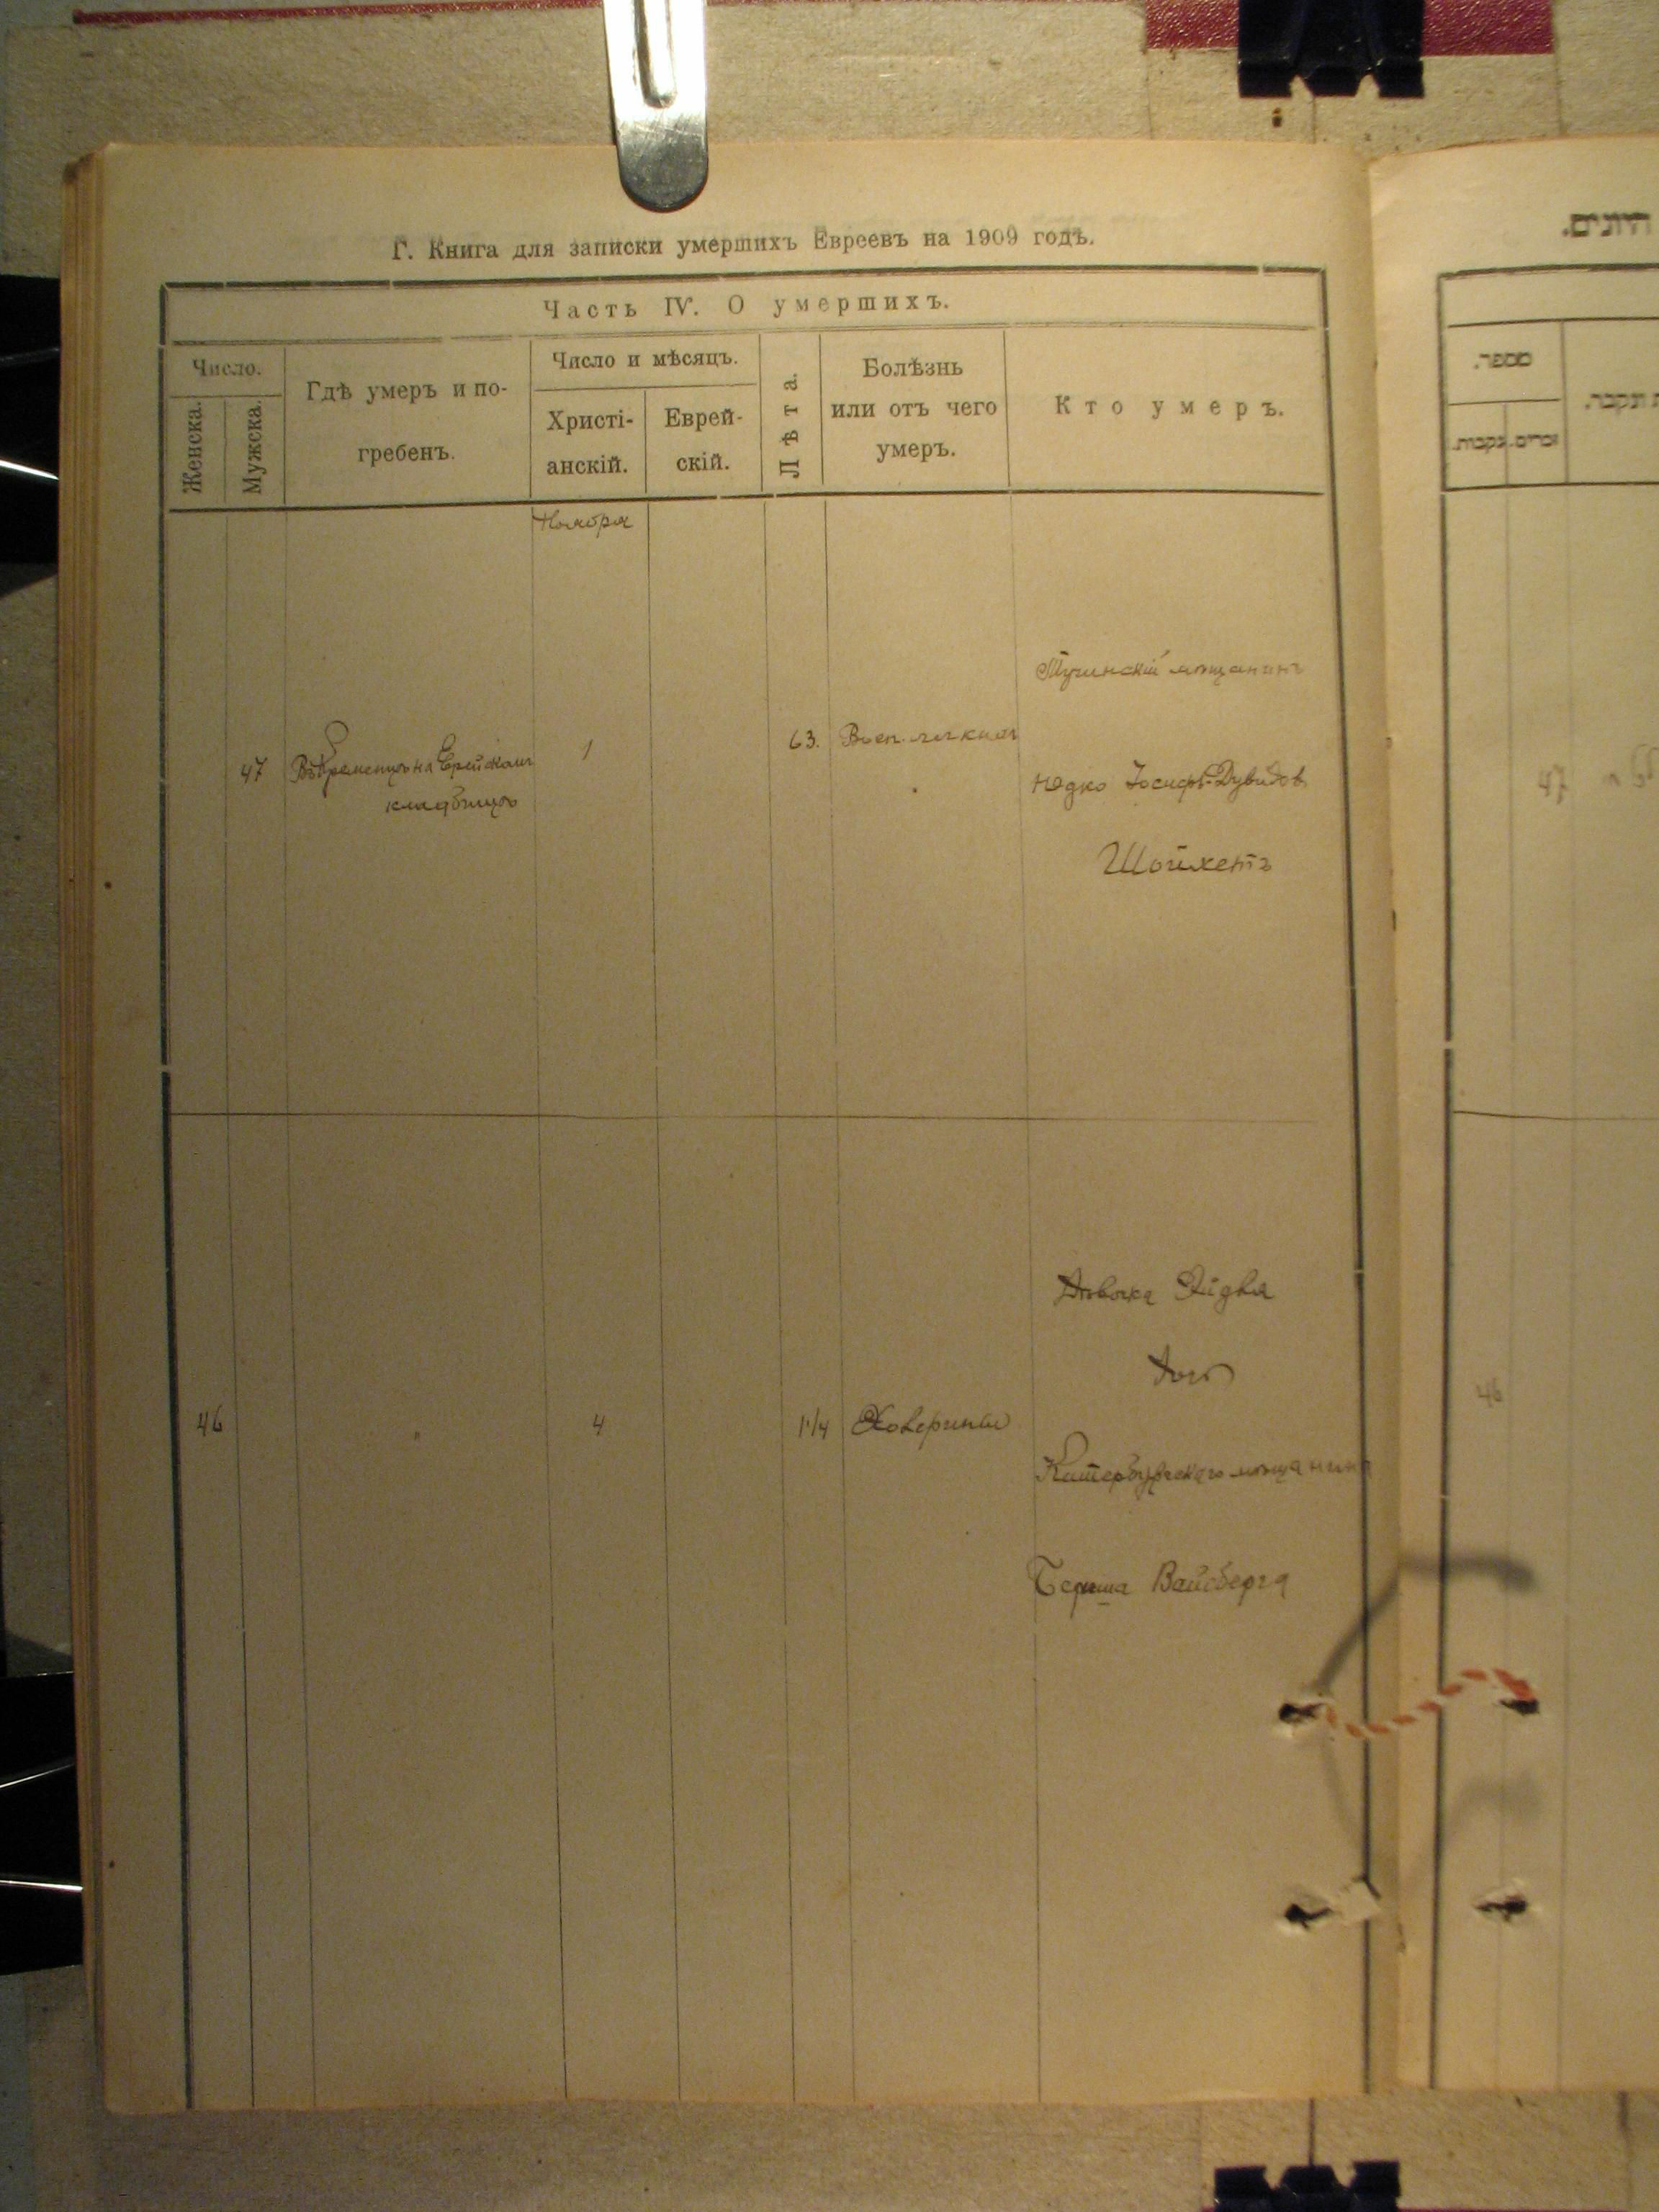 Г. Книга для записки умершихъ Евреевъ на 1909 годъ.
Часть IV. О умершихъ.
Число.
Женска.
Мужска.
Гдѣ умеръ и по-
гребенъ.
Число и мѣсяцъ.
Христі-
анскій.
Еврей-
скій.
Лѣта.
Болѣзнь
или отъ чего
умеръ.
Кто умеръ.
Ноября
47
Въ Кременцѣ на Еврейскомъ
кладбищѣ
1
63.
Восп. легкихъ
Тучинскій мѣщанинъ
Юдко Іосифъ-Дувидовъ
Шойхетъ
46
"
4
1 1/4
Дѣвочка
дочь
Катербургскаго мѣщанина
Берша Вайсберга
מספר.
זכרים.
נקבות.
47
46